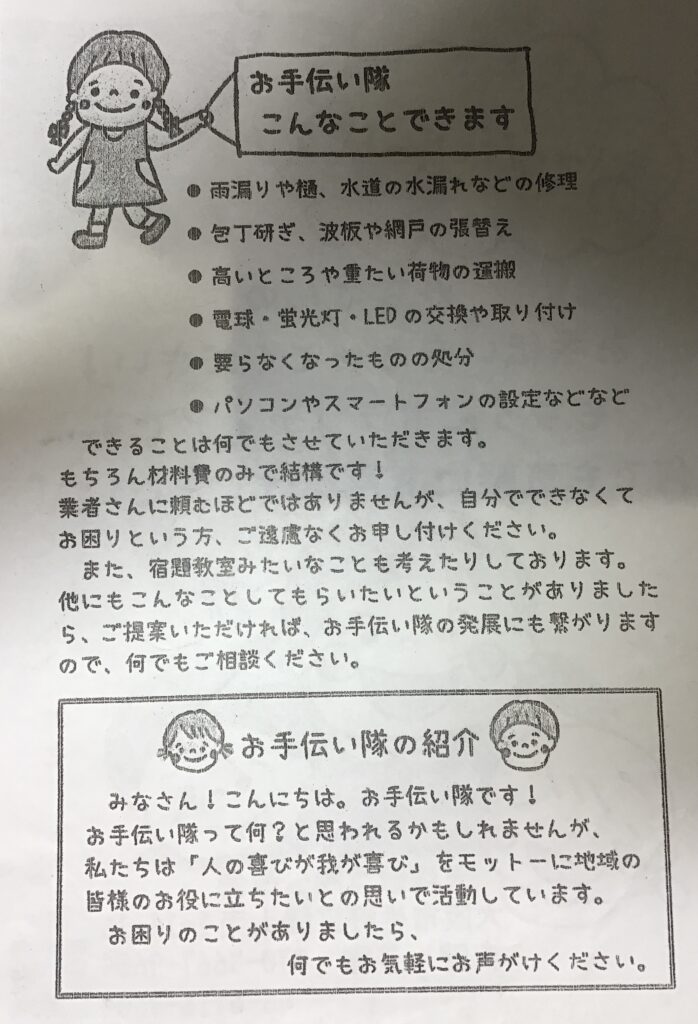 お手伝い隊
こんなことできます
● 雨漏りや樋、水道の水漏れなどの修理
● 包丁研ぎ、波板や網戸の張替え
● 高いところや重たい荷物の運搬
● 電球・蛍光灯・LEDの交換や取り付け
● 要らなくなったものの処分
● パソコンやスマートフォンの設定などなど
できることは何でもさせていただきます。
もちろん材料費のみで結構です！
業者さんに頼むほどではありませんが、自分でできなくて
お困りという方、ご遠慮なくお申し付けください。
また、宿題教室みたいなことも考えたりしております。
他にもこんなことしてもらいたいということがありました
ら、ご提案いただければ、お手伝い隊の発展にも繋がります
ので、何でもご相談ください。
お手伝い隊の紹介
みなさん！こんにちは。お手伝い隊です！
お手伝い隊って何？と思われるかもしれませんが、
私たちは「人の喜びが我が喜び」をモットーに地域の
皆様のお役に立ちたいとの思いで活動しています。
お困りのことがありましたら、
何でもお気軽にお声がけください。